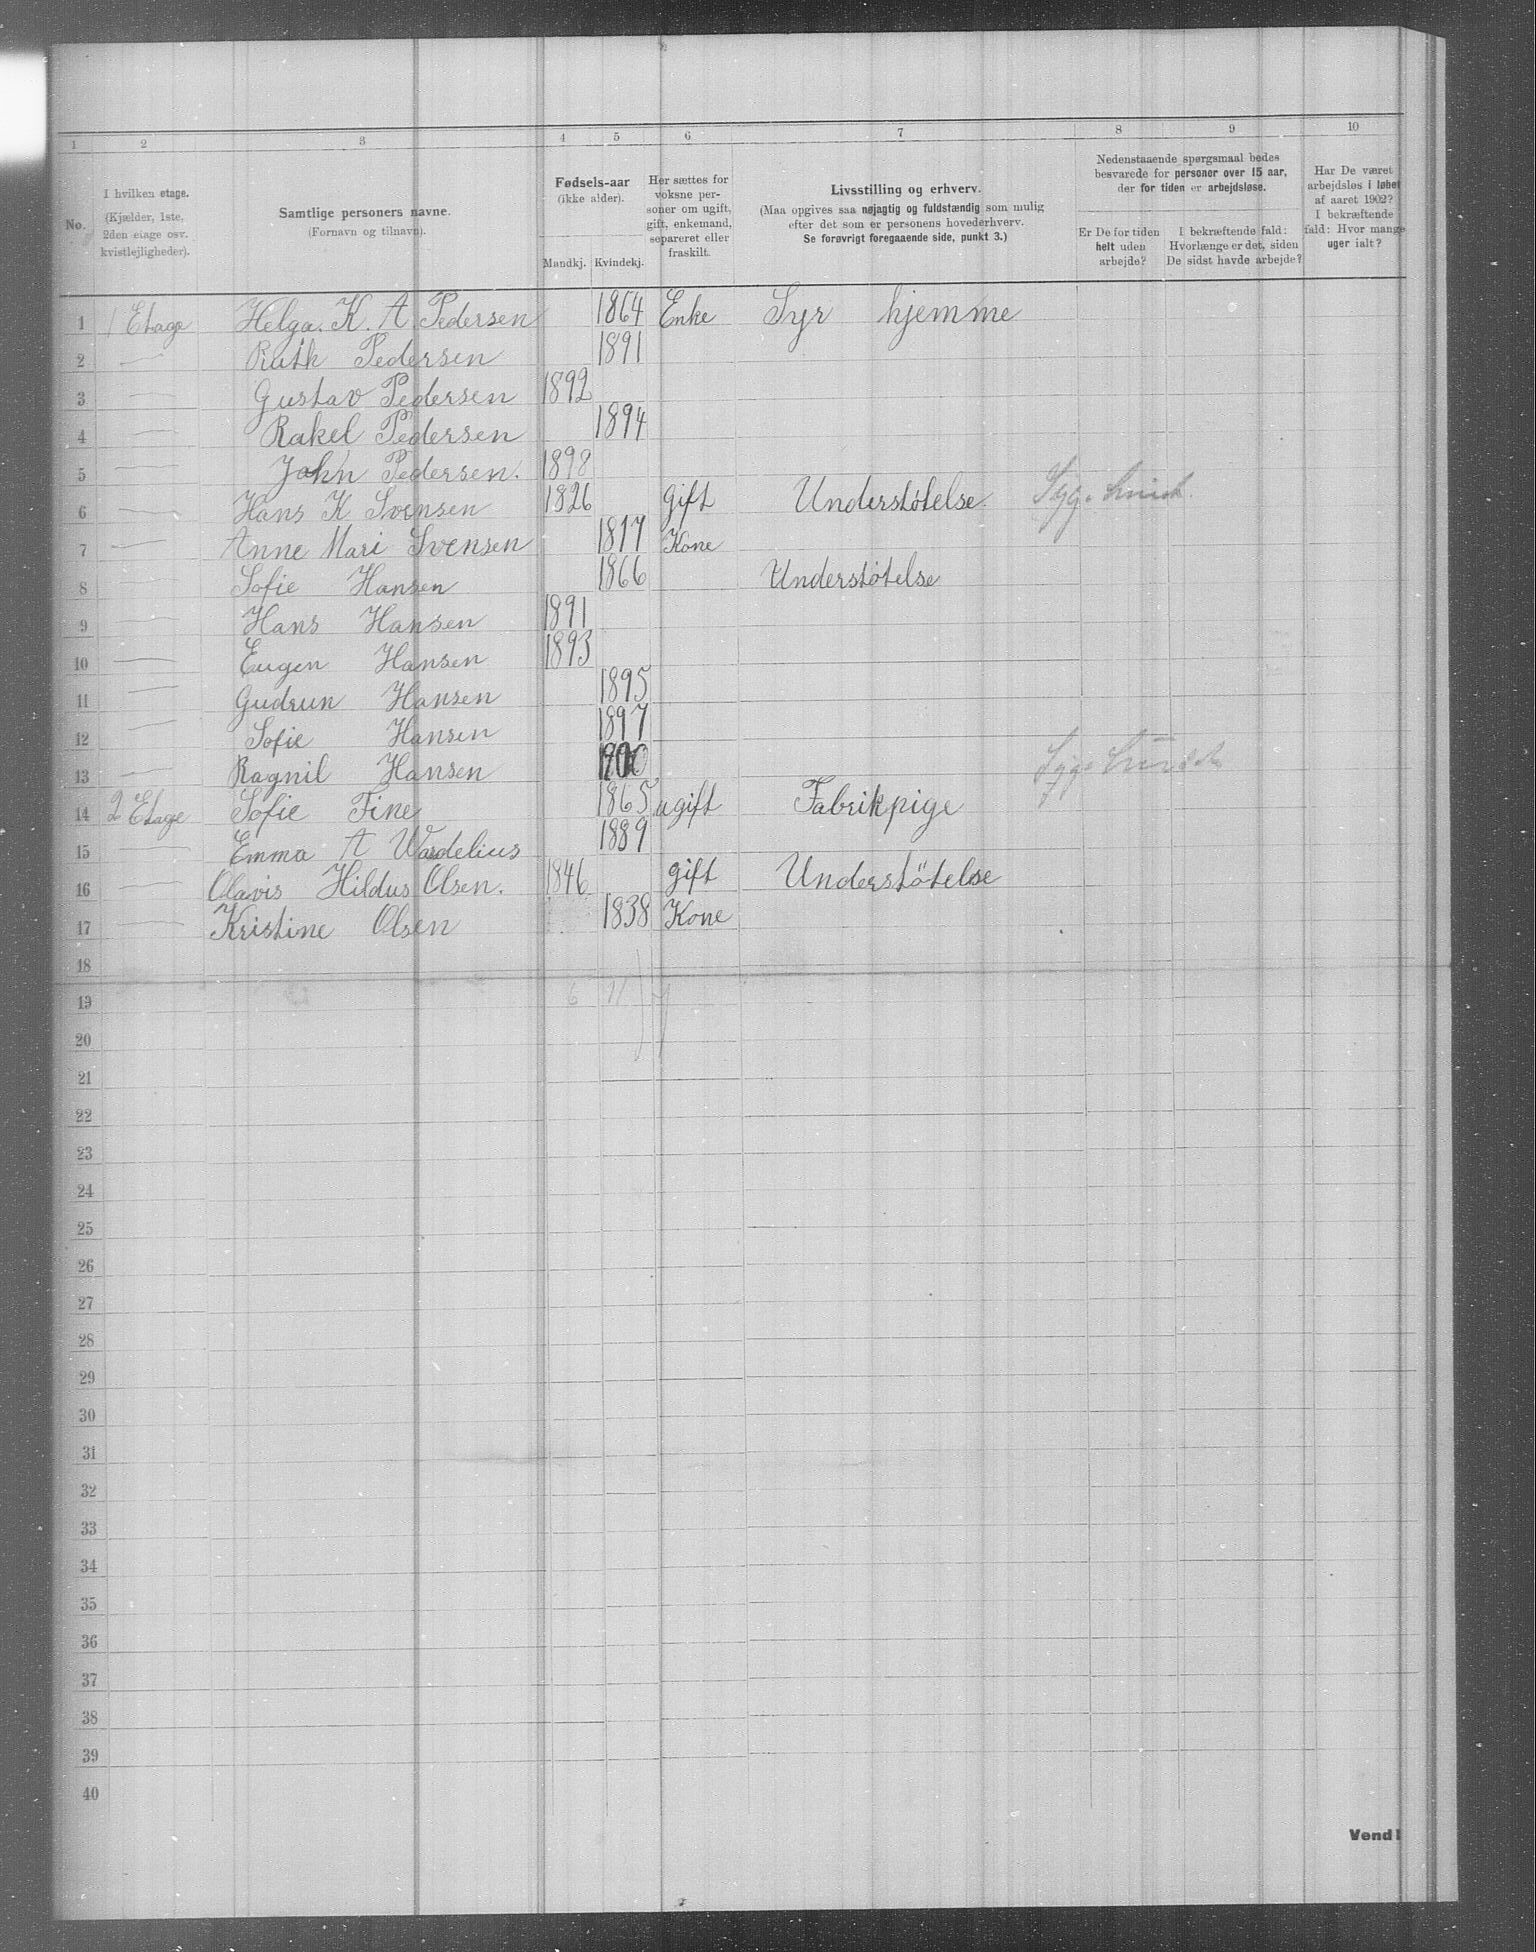 1 2 3 4 5 6 7 8 9 10
No.
I hvilken etage.
(Kjælder, 1ste,
2den etage osv.
kvistlejligheder).
Samtlige personers navne.
(Fornavn og tilnavn).
Fødsels-aar
(ikke alder).
Mandkj. Kvindekj.
Her sættes for
voksne per-
soner om ugift,
gift, enkemand,
separeret eller
fraskilt.
Livsstilling og erhverv.
(Maa opgives saa nøjagtig og fuldstændig som mulig
efter det som er personens hovederhverv.
Se forøvrigt foregaaende side, punkt 3.)
Nedenstaaende spørgsmaal bedes
besvarede for personer over 15 aar,
der for tiden er arbejdsløse.
Er De for tiden
helt uden
arbejde?
I bekræftende fald:
Hvorlænge er det, siden
De sidst havde arbejde?
Har De været
arbejdsløs i løbet
af aaret 1902?
I bekræftende
fald: Hvor mange
uger ialt?
1 1 Etage Helga. K. A. Pedersen 1864 Enke Syr hjemme
2 — Ruth Pedersen 1891
3 — Gustav Pedersen 1892
4 — Rakel Pedersen 1894
5 — John Pedersen. 1898
6 — Hans K Svensen 1826 gift Understøtelse.
7 — Anne Mari Svensen 1817 Kone
8 — Sofie Hansen 1866 Understøtelse
9 — Hans Hansen 1891
10 — Eugen Hansen 1893
11 — Gudrun Hansen 1895
12 — Sofie Hansen 1897
13 — Ragnil Hansen 1900
14 2 Etage Sofie Fine 1865 ugift Fabrikpige
15 — Emma A Wardelius 1889
16 — Olavis Hildus Olsen. 1846 gift Understøtelse
17 — Kristine Olsen 1838 Kone
18
19 6 11
20
21
22
23
24
25
26
27
28
29
30
31
32
33
34
35
36
37
38
39
40
Vend!